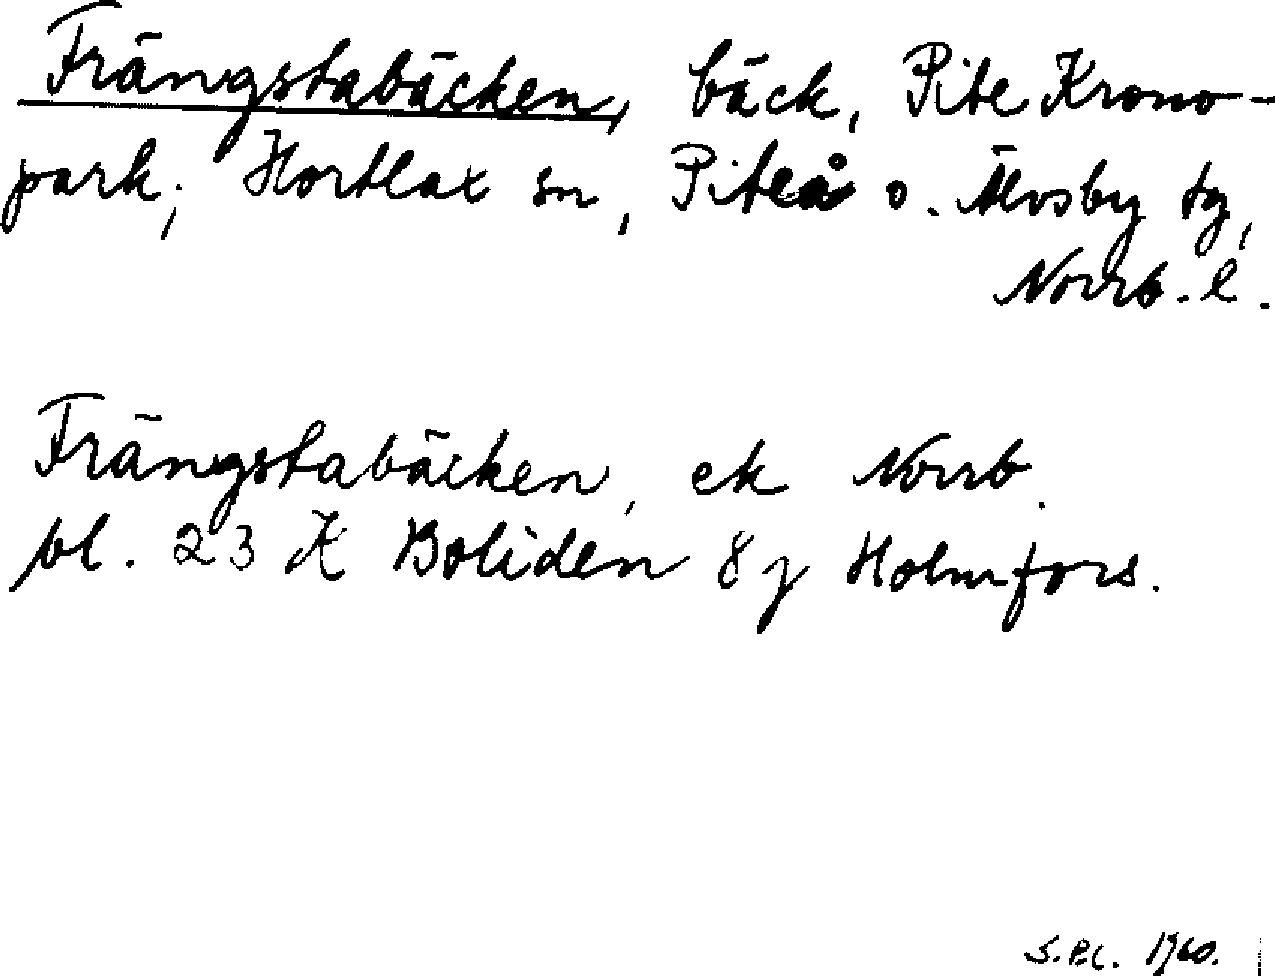 Frängstabäcken, bäck, Pite Krono-
park, Hortlax sn, Piteå o. Älvsby tg,
Norrb. l.
Frängstabäcken, ek Norrb.
bl. 23 K Boliden 8 j Holmfors.
1960.